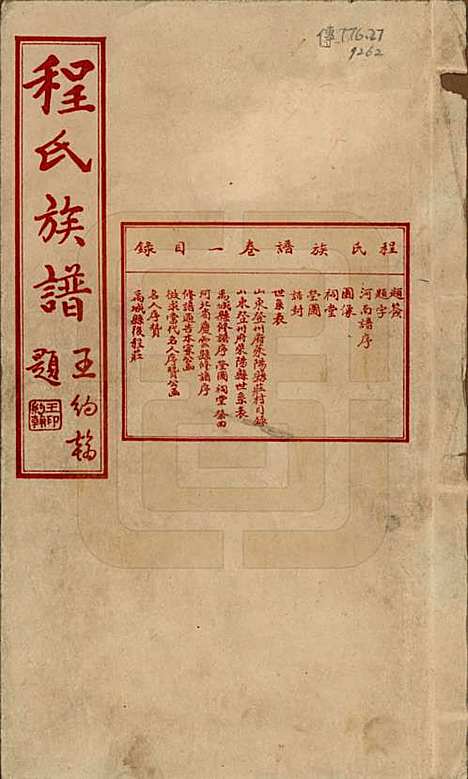 傳 776.27
9262
程氏族譜
王約翰題
王印約翰
程氏族譜卷一目錄
題簽
題字
河南譜序
圖像
祠堂
塋圖
誥封
世系表
山東登州府萊陽縣莊村目錄
山東登州府萊陽縣世系表
禹城縣修譜序塋圖祠堂
河北省慶雲縣修譜序
修譜通告本案公函
徵求當代名人序贊公函
名人序贊
禹城縣後程莊